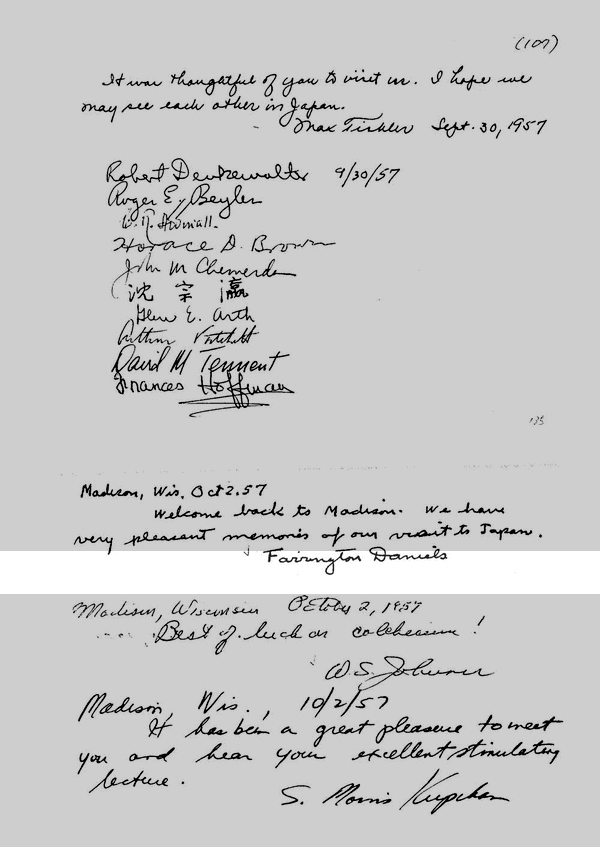 (107)
It was thoughtful of you to visit us. I hope we
may see each other in Japan.
Max Tishler Sept. 30, 1957
Robert Denkewalter 9/30/57
Roger E. Beyler
Horace D. Brown
John M Chemerda
沈 宗 瀛
Glen E. Arth
Arthur Patchett
David M Tennent
Frances Hoffman
135
Madison, Wis, Oct 2. 57
Welcome back to Madison. We have
very pleasant memories of our visit to Japan.
Farrington Daniels
Madison, Wisconsin October 2, 1957
Best of luck on colchicine!
W. S. Johnson
Madison, Wis., 10/2/57
It has been a great pleasure to meet
you and hear your excellent stimulating
lecture.
S. Morris Kupchan